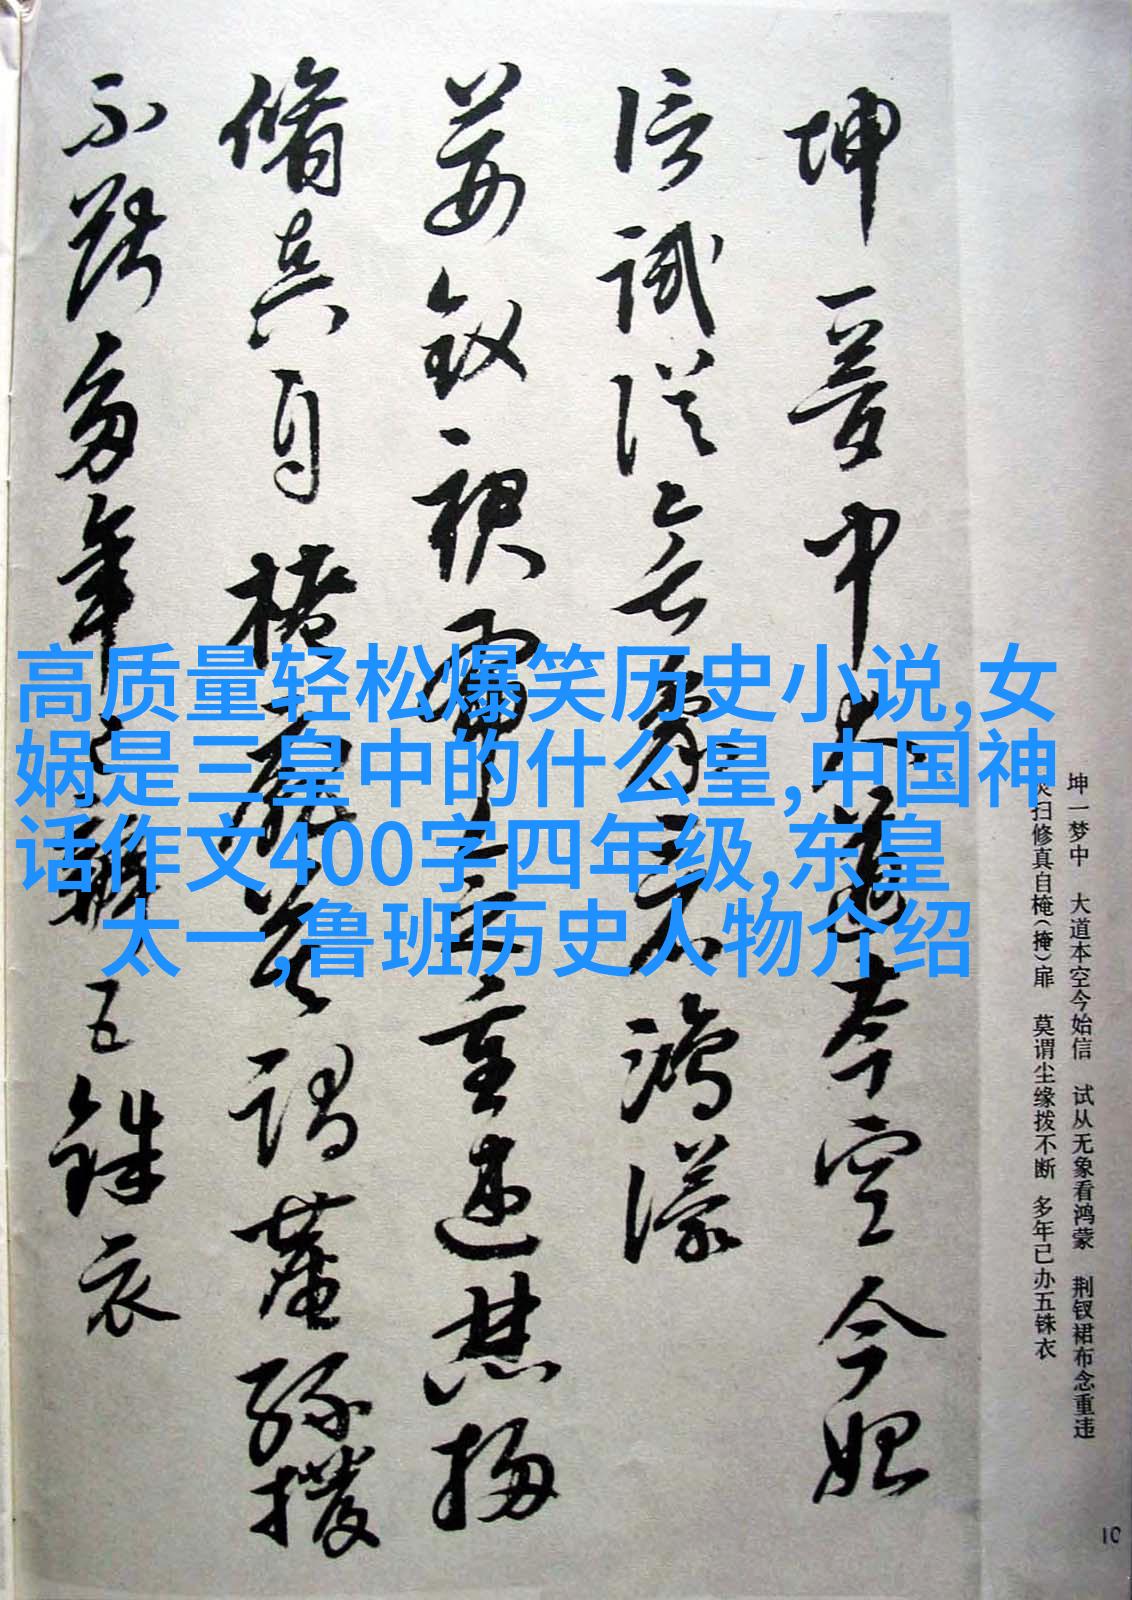 坤一梦中大道本空今始
信试从无象看鸿濛
荆钗裙布念重违焚扫
修真自掩扉莫谓尘缘拨
不断多年已办五铢衣
高质量轻松爆笑历史小说,女
娲是三皇中的什么皇,中国神
话作文400字四年级,东皇
太一,鲁班历史人物介绍
坤一梦中 大道本空今始信 试从无象看鸿蒙 荆钗裙布念重违
焚扫修真自掩(掩)扉 莫谓尘缘拨不断 多年已办五铢衣
10